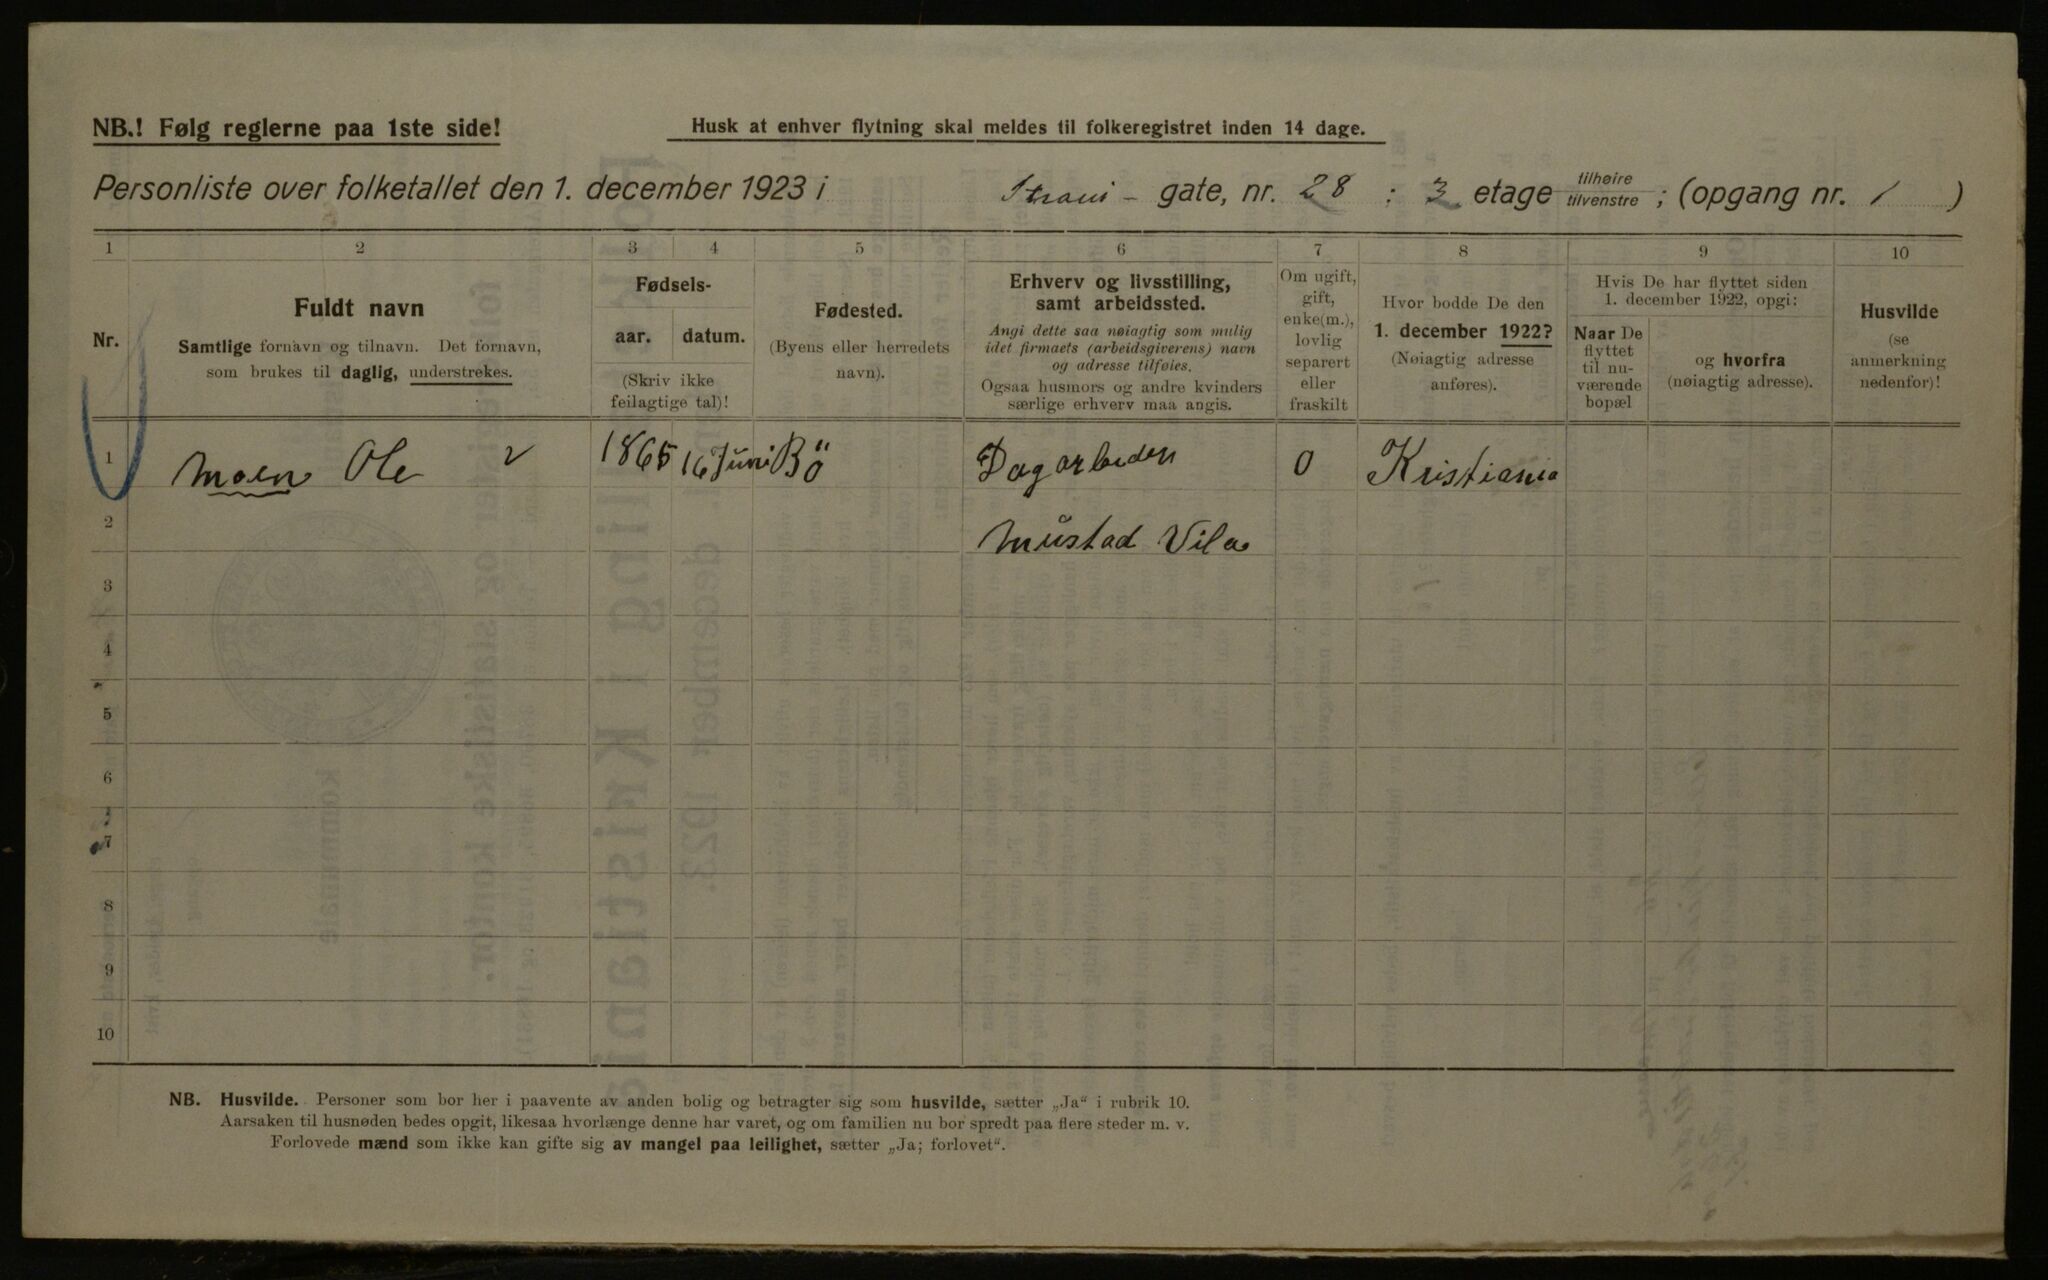 NB.! Følg reglerne paa 1ste side!
Husk at enhver flytning skal meldes til folkeregistret inden 14 dage.
Personliste over folketallet den 1. december 1923 i - gate, nr. 28 : 3 etage tilhøire tilvenstre ; (opgang nr. 1 )
1 2 3 4 5 6 7 8 9 10
Nr.
Fuldt navn
Samtlige fornavn og tilnavn. Det fornavn,
som brukes til daglig, understrekes.
Fødsels-
aar. datum.
(Skriv ikke
feilagtige tal)!
Fødested.
(Byens eller herredets
navn).
Erhverv og livsstilling,
samt arbeidssted.
Angi dette saa nøiagtig som mulig
idet firmaets (arbeidsgiverens) navn
og adresse tilføies.
Ogsaa husmors og andre kvinders
særlige erhverv maa angis.
Om ugift,
gift,
enke(m.),
lovlig
separert
eller
fraskilt
Hvor bodde De den
1. december 1922?
(Nøiagtig adresse
anføres).
Hvis De har flyttet siden
1. december 1922, opgi:
Naar De
flyttet
til nu-
værende
bopæl
og hvorfra
(nøiagtig adresse).
Husvilde
(se
anmerkning
nedenfor)!
1 Moen Ole 1865 16 Juni Bö Dagarbeider 0 Kristiania
2 Mustad Vila
3
4
5
6
7
8
9
10
NB. Husvilde. Personer som bor her i paavente av anden bolig og betragter sig som husvilde, sætter „Ja“ i rubrik 10.
Aarsaken til husnøden bedes opgit, likesaa hvorlænge denne har varet, og om familien nu bor spredt paa flere steder m. v.
Forlovede mænd som ikke kan gifte sig av mangel paa leilighet, sætter „Ja; forlovet“.